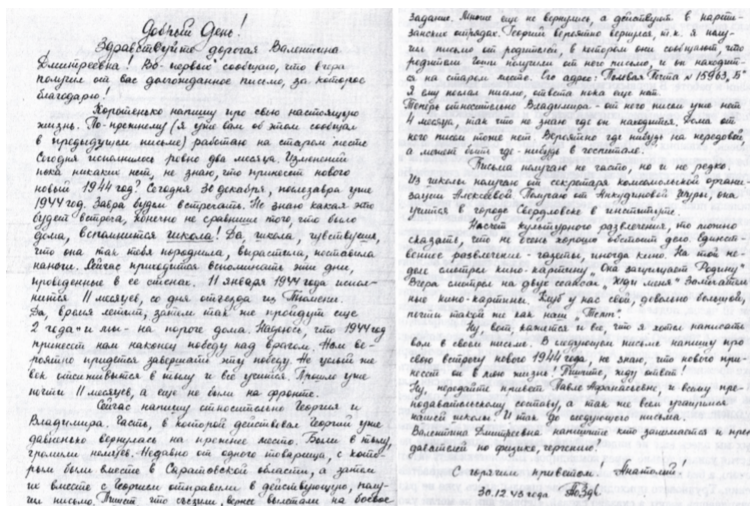 Добрый день!
Здравствуйте дорогая Валентина
Дмитреевна! Во-первых сообщаю, что вчера
получил от вас долгожданное письмо, за которое
благодарю!
Коротенько напишу про свою настоящую
жизнь. По-прежнему (я уже вам об этом сообщал
в предыдущем письме) работаю на старом месте
Сегодня исполнилось ровно два месяца. Изменений
пока никаких нет, не знаю, что принесет нового
новый 1944 год? Сегодня 30 декабря, послезавтра уже
1944 год. Завтра будем встречать. Не знаю какая это
будет встреча, конечно не сравнить того, что было
дома, вспомнится школа! Да, школа, чувствуешь,
что она так тебя породнила, вырастила, поставила
на ноги. Сейчас приходится вспоминать эти дни,
проведенные в ее стенах. 11 января 1944 года испол-
нится 11 месяцев, со дня отъезда из Тюмени.
Да, время летит, затем так же пройдут еще
2 года и мы - на пороге дома. Надеюсь, что 1944 год
принесет нам наконец победу над врагом. Нам ве-
роятно придется завершать эту победу. Не целый же
век отсиживаться в тылу и все учиться. Прошло уже
почти 11 месяцев, а еще не были на фронте.
Сейчас напишу относительно Георгия и
Владимира. Часть, в которой действовал Георгий уже
давненько вернулась на прежнее место. Были в тылу,
громили немцев. Недавно от одного товарища, с кото-
рым были вместе в Саратовской области, а затем
их вместе с Георгием отправили в действующую, полу-
чил письмо. Пишет что съездили, вернее вылетали на боевое
задание. Многие еще не вернулись, а действуют в парти-
занских отрядах. Георгий вероятно вернулся, т.к. я полу-
чил письмо от родителей, в котором они сообщают, что
родители Гоши получили от него письмо, и он находит-
ся на старом месте. Его адрес: Полевая Почта № 15963 "Б"
Я ему послал письмо, ответа пока еще нет.
Теперь относительно Владимира - от него писем уже нет
4 месяца, так что не знаю где он находится. Дома от
него писем тоже нет. Вероятно где нибудь на передовой,
а может быть где-нибудь в госпитале.
Письма получаю не часто, но и не редко.
Из школы получаю от секретаря комсомольской органи-
зации Алексеевой. Получаю от Анкудиновой Шуры, она
учится в городе Свердловске в институте.
Насчет культурного развлечения, то можно
сказать, что не очень хорошо обстоит дело. Единст-
венное развлечение - газеты, иногда кино. На той не-
деле смотрел кино-картину "Она защищает Родину"
Вчера смотрел на двух сеансах "Жди меня" Замечатель-
ные кино-картины. Клуб у нас свой, довольно большой,
почти такой же как наш "Темп".
Ну, вот, кажется и все, что я хотел написать
вам в своем письме. В следующем письме напишу про
свою встречу нового 1944 года, не знаю, что нового при-
несет он в мою жизнь! Пишите, жду ответ!
Ну, передайте привет Павле Афанасьевне, и всему пре-
подавательскому составу, а так же всем учащимся
нашей школы. И так до следующего письма.
Валентина Дмитреевна напишите кто занимается и пре
давателей по физике, черчению?
С горячим приветом! Анатолий!
30.12.43 года